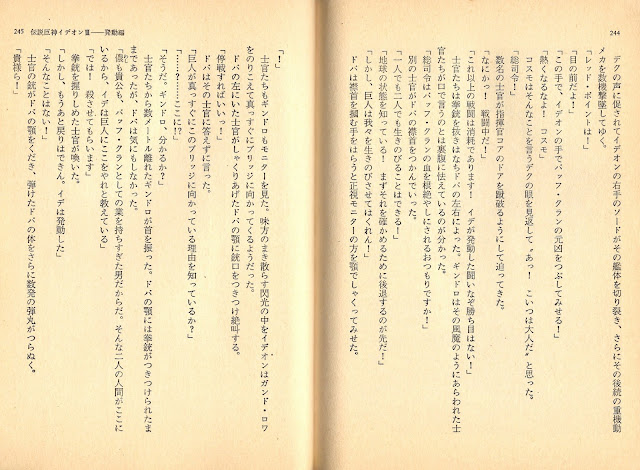 244
デクの声に促されてイデオンの右手のソードがその艦体を切り裂き、さらにその後続の重機動
メカを数機撃墜してゆく。
「レッド・ポイントは！」
「目の前だよ！」
「この手で、イデオンの手でバッフ・クランの元凶をつぶしてみせる！」
「熱くなるなよ！　コスモ」
コスモはそんなことを言うデクの眼を見返して〝あっ！　こいつは大人だ〟と思った。
「総司令！」
数名の士官が指揮官コアのドアを蹴破るようにして迫ってきた。
「なにかっ！　戦闘中だ！」
「これ以上の戦闘は消耗であります！　イデが発動した闘いなぞ勝ち目はない！」
士官たちは拳銃を抜きはなちドバの左右によった。ギンドロはその風魔のようにあらわれた士
官たちが口で言うのとは裏腹に怯えているのが分かった。
「総司令はバッフ・クランの血を根絶やしにされるおつもりですか！」
別の士官がドバの襟首をつかんでいった。
「一人でも二人でも生きのびることはできる！」
「地球の状態を知っている！　まずそれを確かめるために後退するのが先だ！」
「しかし、巨人は我々を生きのびさせてはくれん！」
ドバは襟首を摑む手をはらうと正視モニターの方を顎でしゃくってみせた。
245　伝説巨神イデオンⅢ——発動編
「！」
士官たちもギンドロもモニターを見た。味方のまき散らす閃光の中をイデオンはガンド・ロワ
をのりこえて真っすぐにブリッジに向かってくるようだった。
ドバの左にいた士官がしゃくりあげたドバの顎に銃口をつきつけ絶叫する。
「停戦すればいいっ！」
ドバはその士官に答えずに言った。
「巨人が真っすぐにこのブリッジに向かっている理由を知っているか？」
「……？……ここに!?」
「そうだ。ギンドロ、分かるか？」
士官たちから数メートル離れたギンドロが首を振った。ドバの顎には拳銃がつきつけられたま
まであったが、ドバは気にもしなかった。
「僕も貴公も、バッフ・クランとしての業を持ちすぎた男だからだ。そんな二人の人間がここに
いるから、イデは巨人にここをやれと教えている」
「では！　殺させてもらいます」
拳銃を握りしめた士官が喚いた。
「しかし、もうあと戻りはできん。イデは発動した」
「そんなことはない！」
士官の銃がドバの顎をくだき、弾けたドバの体をさらに数発の弾丸がつらぬく。
「貴様ら！」